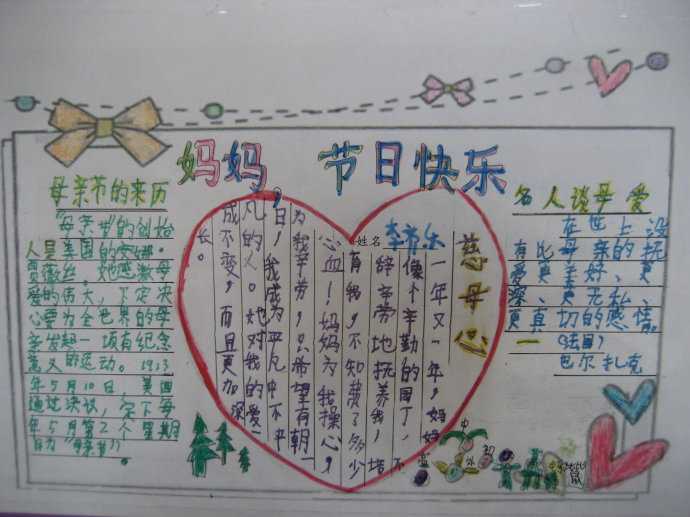 妈妈,节日快乐
母亲节的来历
"母亲节"的创始
人是美国的安娜。
贾薇丝。她感激母
爱的伟大,下定决
心要为全世界的母
亲发起一项有纪念
意义的运动。1913
年5月10日,美国
通过决议,定下每
年5月第2个星期
日为"母亲节"。
慈母心
姓名 李
一年又一年,妈妈
像个辛勤的园丁,不
辞辛劳地抚养我,培
育我,不知费了多少
心血!妈妈为我操心,
为我辛劳,只希望有朝一
日,我成为平凡中不平
凡的人。她对我的爱
成不变,而且更加深
长。
名人谈母爱
在世上没
有比母亲的抚
爱更美好、更
深、更无私、
更真切的感情。
—(法国)
巴尔扎克